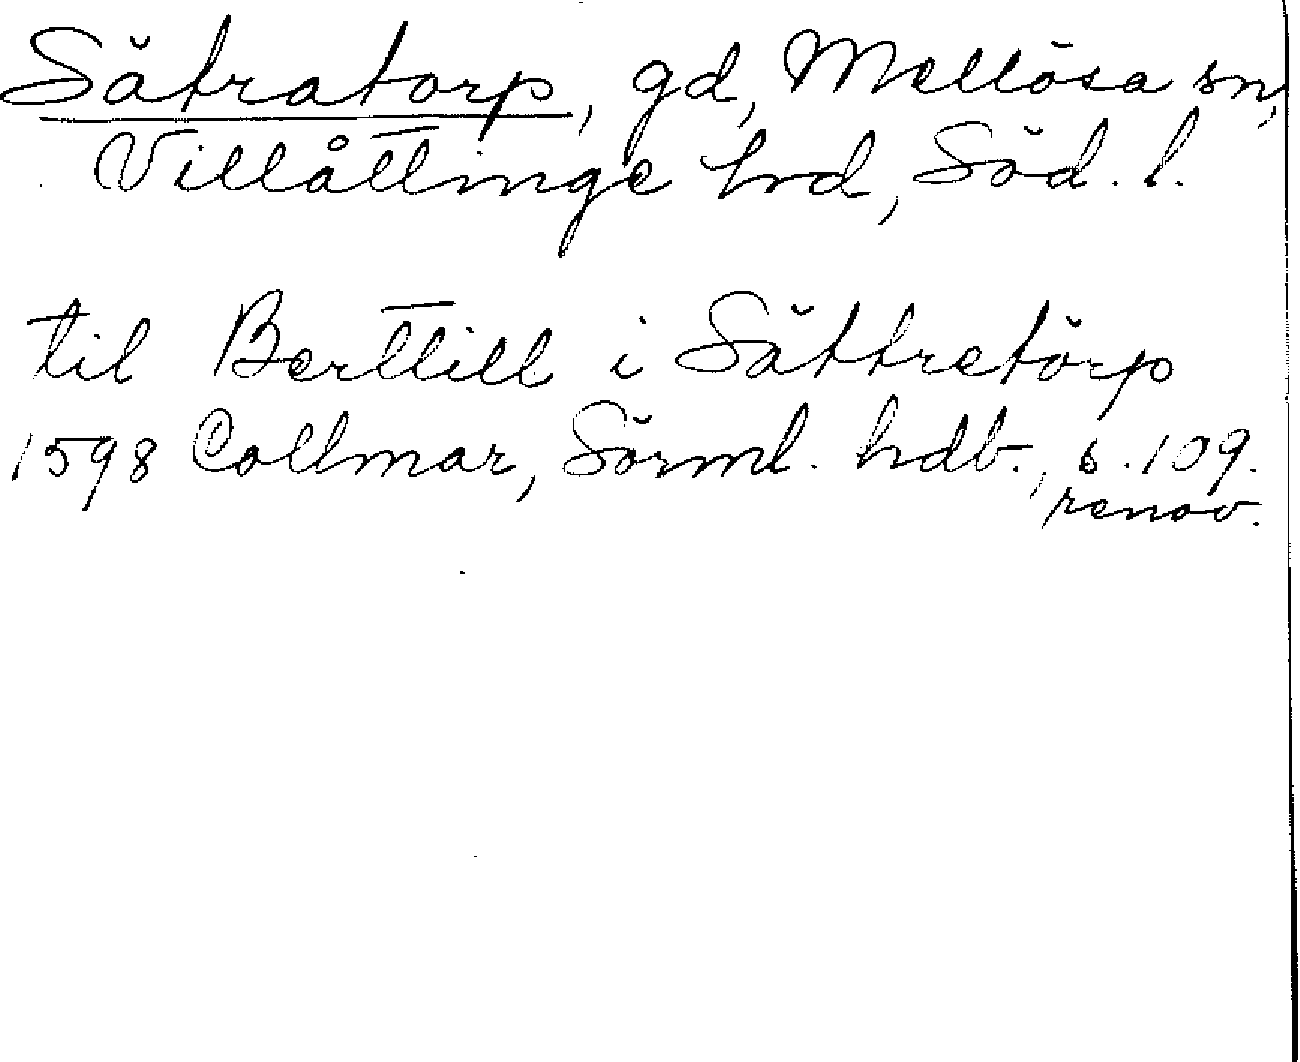 Sätratorp, gd, Mellösa sn,
Villåttinge hrd, Söd. l.
til Berttill i Sättretörp
1598 Collmar, Sörml. hdb., s. 109.
renov.